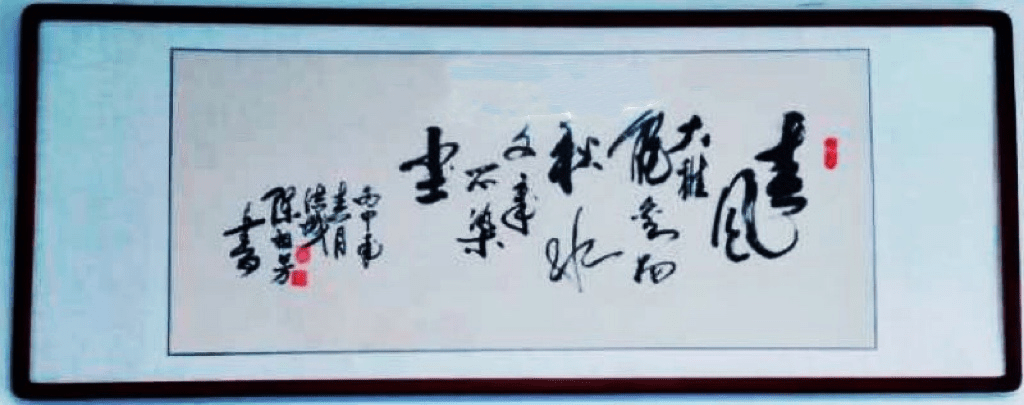 春風
大雅
能容物
秋水
文章
不染
尘
丙申年
春月
陈
書